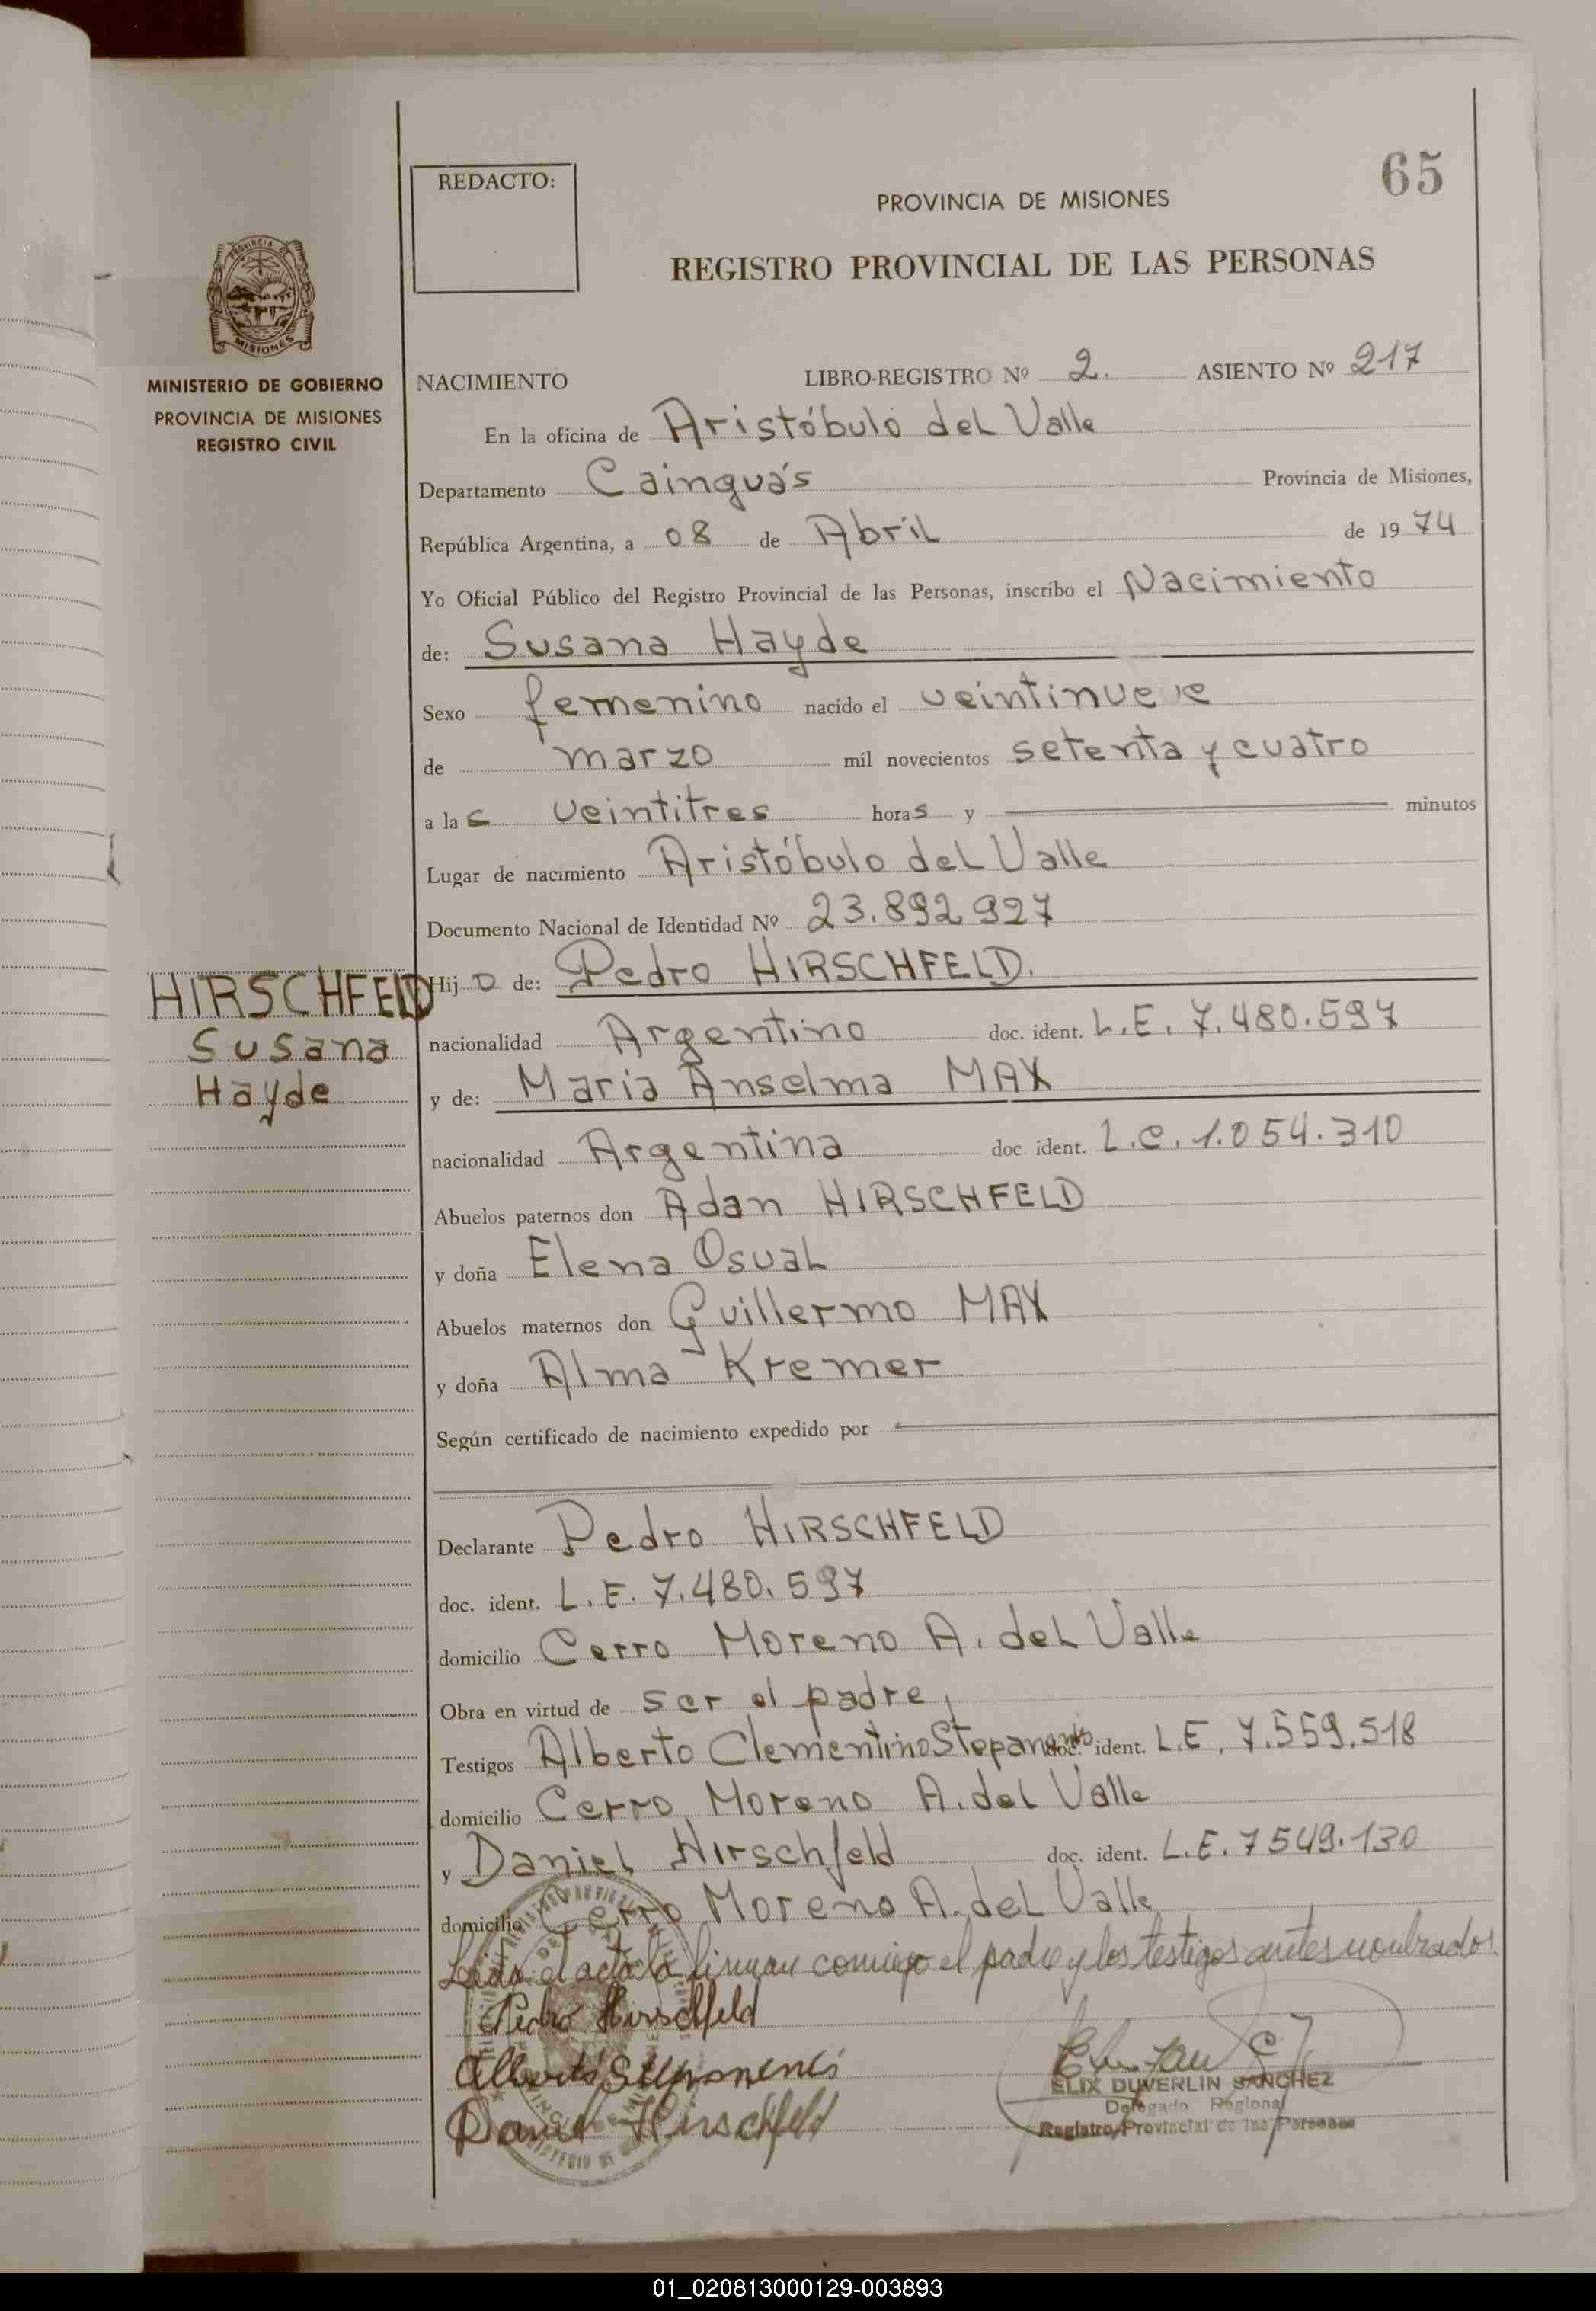 65
REDACTO:
PROVINCIA DE MISIONES
REGISTRO PROVINCIAL DE LAS PERSONAS
PROVINCIA DE
MISIONES
MINISTERIO DE GOBIERNO
PROVINCIA DE MISIONES
REGISTRO CIVIL
NACIMIENTO LIBRO-REGISTRO Nº 2. ASIENTO Nº 217
En la oficina de Aristóbulo del Valle
Departamento Cainguás Provincia de Misiones,
República Argentina, a 08 de Abril de 19 74
Yo Oficial Público del Registro Provincial de las Personas, inscribo el Nacimiento
de: Susana Hayde
Sexo femenino nacido el veintinueve
de marzo mil novecientos setenta y cuatro
a las veintitres horas y minutos
Lugar de nacimiento Aristóbulo del Valle
Documento Nacional de Identidad Nº 23.892927
HIRSCHFELD
Susana
Hayde
Hij a de: Pedro HIRSCHFELD.
nacionalidad Argentino doc. ident. L.E. 7.480.597
y de: Maria Anselma MAX
nacionalidad Argentina doc ident. L.C. 1.054.310
Abuelos paternos don Adan HIRSCHFELD
y doña Elena Osual
Abuelos maternos don Guillermo MAX
y doña Alma Kremer
Según certificado de nacimiento expedido por
Declarante Pedro HIRSCHFELD
doc. ident. L.E. 7.480.597
domicilio Cerro Moreno A. del Valle
Obra en virtud de ser el padre,
Testigos Alberto Clementino doc. ident. L.E. 7.559.518
domicilio Cerro Moreno A. del Valle
y Daniel Hirschfeld doc. ident. L.E. 7549.130
domicilio Cerro Moreno A. del Valle
Leida el acta la firman conmigo el padre y los testigos antes nombrados
Pedro Hirschfeld
Alberto
Daniel Hirschfeld
ELIX DUVERLIN SANCHEZ
Delegado Regional
Registro Provincial de las Personas
01_020813000129-003893